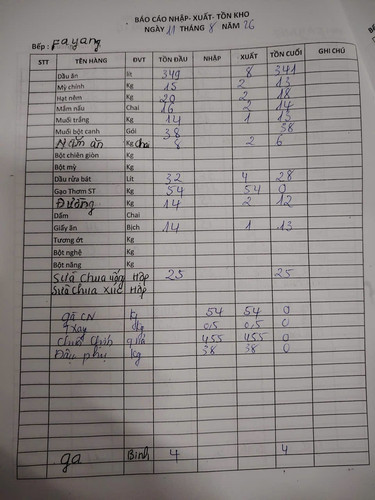 BÁO CÁO NHẬP- XUẤT- TỒN KHO
Bếp : Fayang NGÀY 11 THÁNG 8 NĂM 26
STT TÊN HÀNG ĐVT TỒN ĐẦU NHẬP XUẤT TỒN CUỐI GHI CHÚ
Dầu ăn lít 349 8 341
Mỳ chính Kg 15 2 13
Hạt nêm Kg 20 2 18
Mắm nấu Chai 16 2 14
Muối trắng Kg 14 1 13
Muối bột canh Gói 38 38
Mắm ăn Kg Chai 8 2 6
Bột chiên giòn Kg
Bột mỳ Kg
Dầu rửa bát Lít 32 4 28
Gạo Thơm ST Kg 54 54 0
Đường Kg 14 2 12
Dấm Chai
Giấy ăn Bịch 14 1 13
Tương ớt Kg
Bột nghệ Kg
Bột năng Kg
Sữa chua uống Hộp 25 25
Sữa chua xúc Hộp
gà CN kg 54 54 0
Xay kg 0,5 0,5 0
quả 455 455 0
Đậu phụ kg 38 38 0
ga Bình 4 4